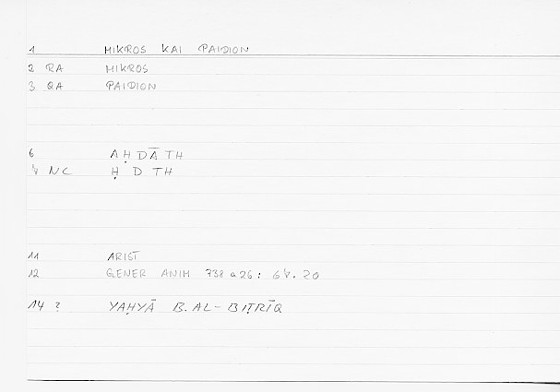 1 MIKROS KAI PAIDION
2 RA MIKROS
3 QA PAIDION
6 AḤDĀTH
NC Ḥ D TH
11 ARIST
12 GENER ANIM 738 a 26: 64. 20
14 ? YAḤYĀ B. AL-BIṬRĪQ